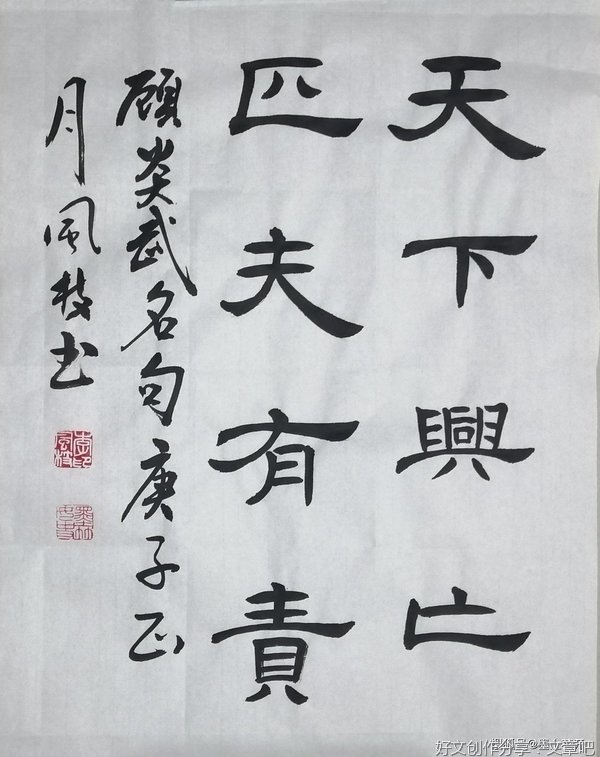 天下興亡
匹夫有責
顾炎武名句庚子正
月風枝书
好文创作分享·文章吧